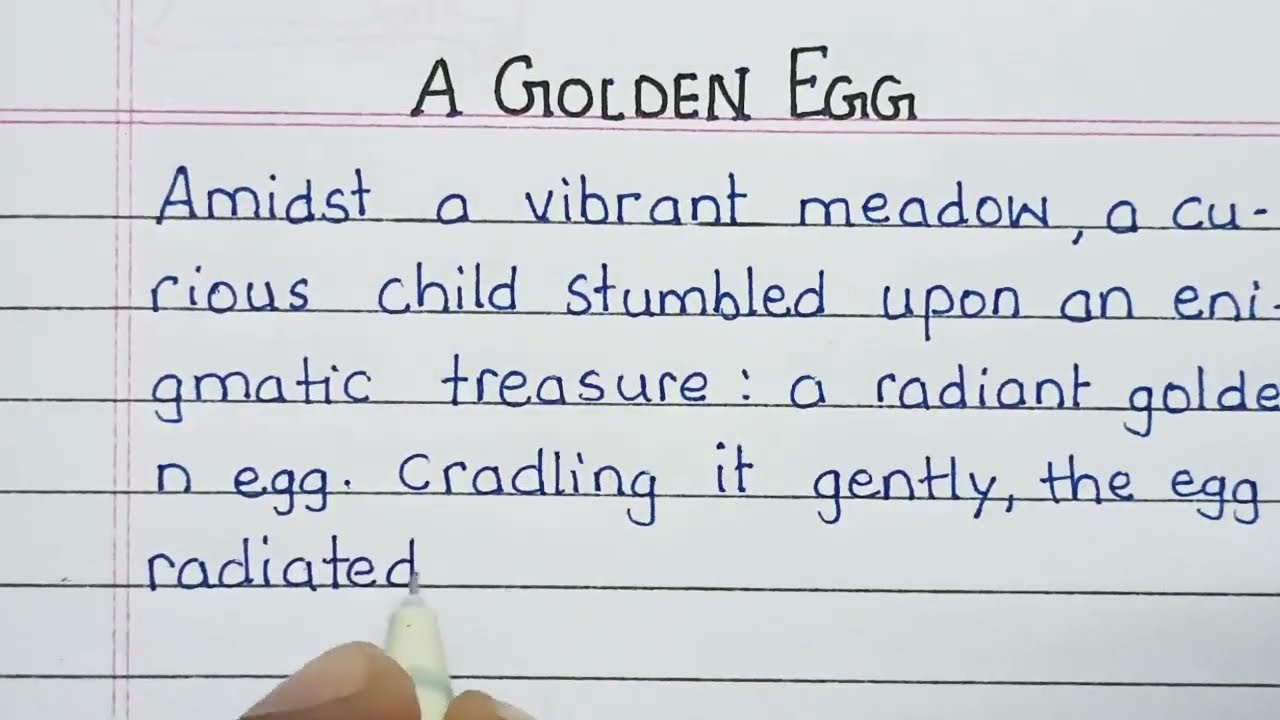 A GOLDEN EGG
Amidst a vibrant meadow, a cu-
rious child stumbled upon an eni-
gmatic treasure: a radiant golde
n egg. Cradling it gently, the egg
radiated